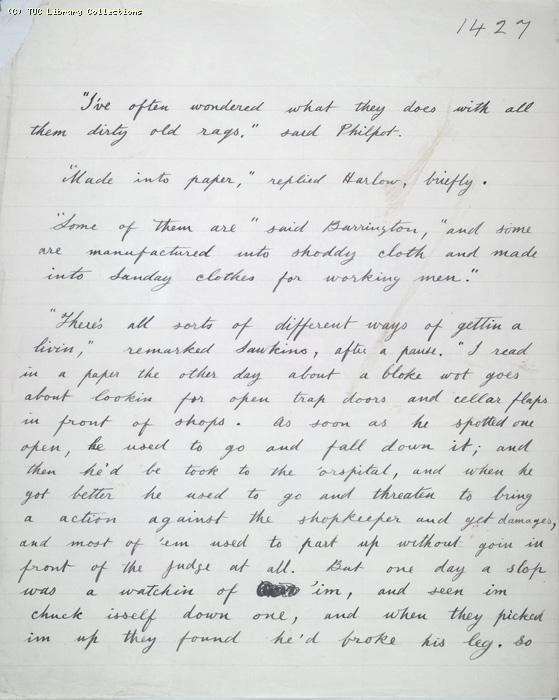 (C) TUC Library Collections
1427
"I've often wondered what they does with all
them dirty old rags." said Philpot.
"Made into paper," replied Harlow, briefly.
"Some of them are" said Barrington, "and some
are manufactured into shoddy cloth and made
into Sunday clothes for working men."
"There's all sorts of different ways of gettin a
livin," remarked Sawkins, after a pause. "I read
in a paper the other day about a bloke wot goes
about lookin for open trap doors and cellar flaps
in front of shops. As soon as he spotted one
open, he used to go and fall down it; and
then he'd be took to the 'orspital, and when he
got better he used to go and threaten to bring
a action against the shopkeeper and get damages,
and most of 'em used to part up without goin in
front of the judge at all. But one day a slop
was a watchin of 'im, and seen im
chuck isself down one, and when they picked
im up they found he'd broke his leg. So